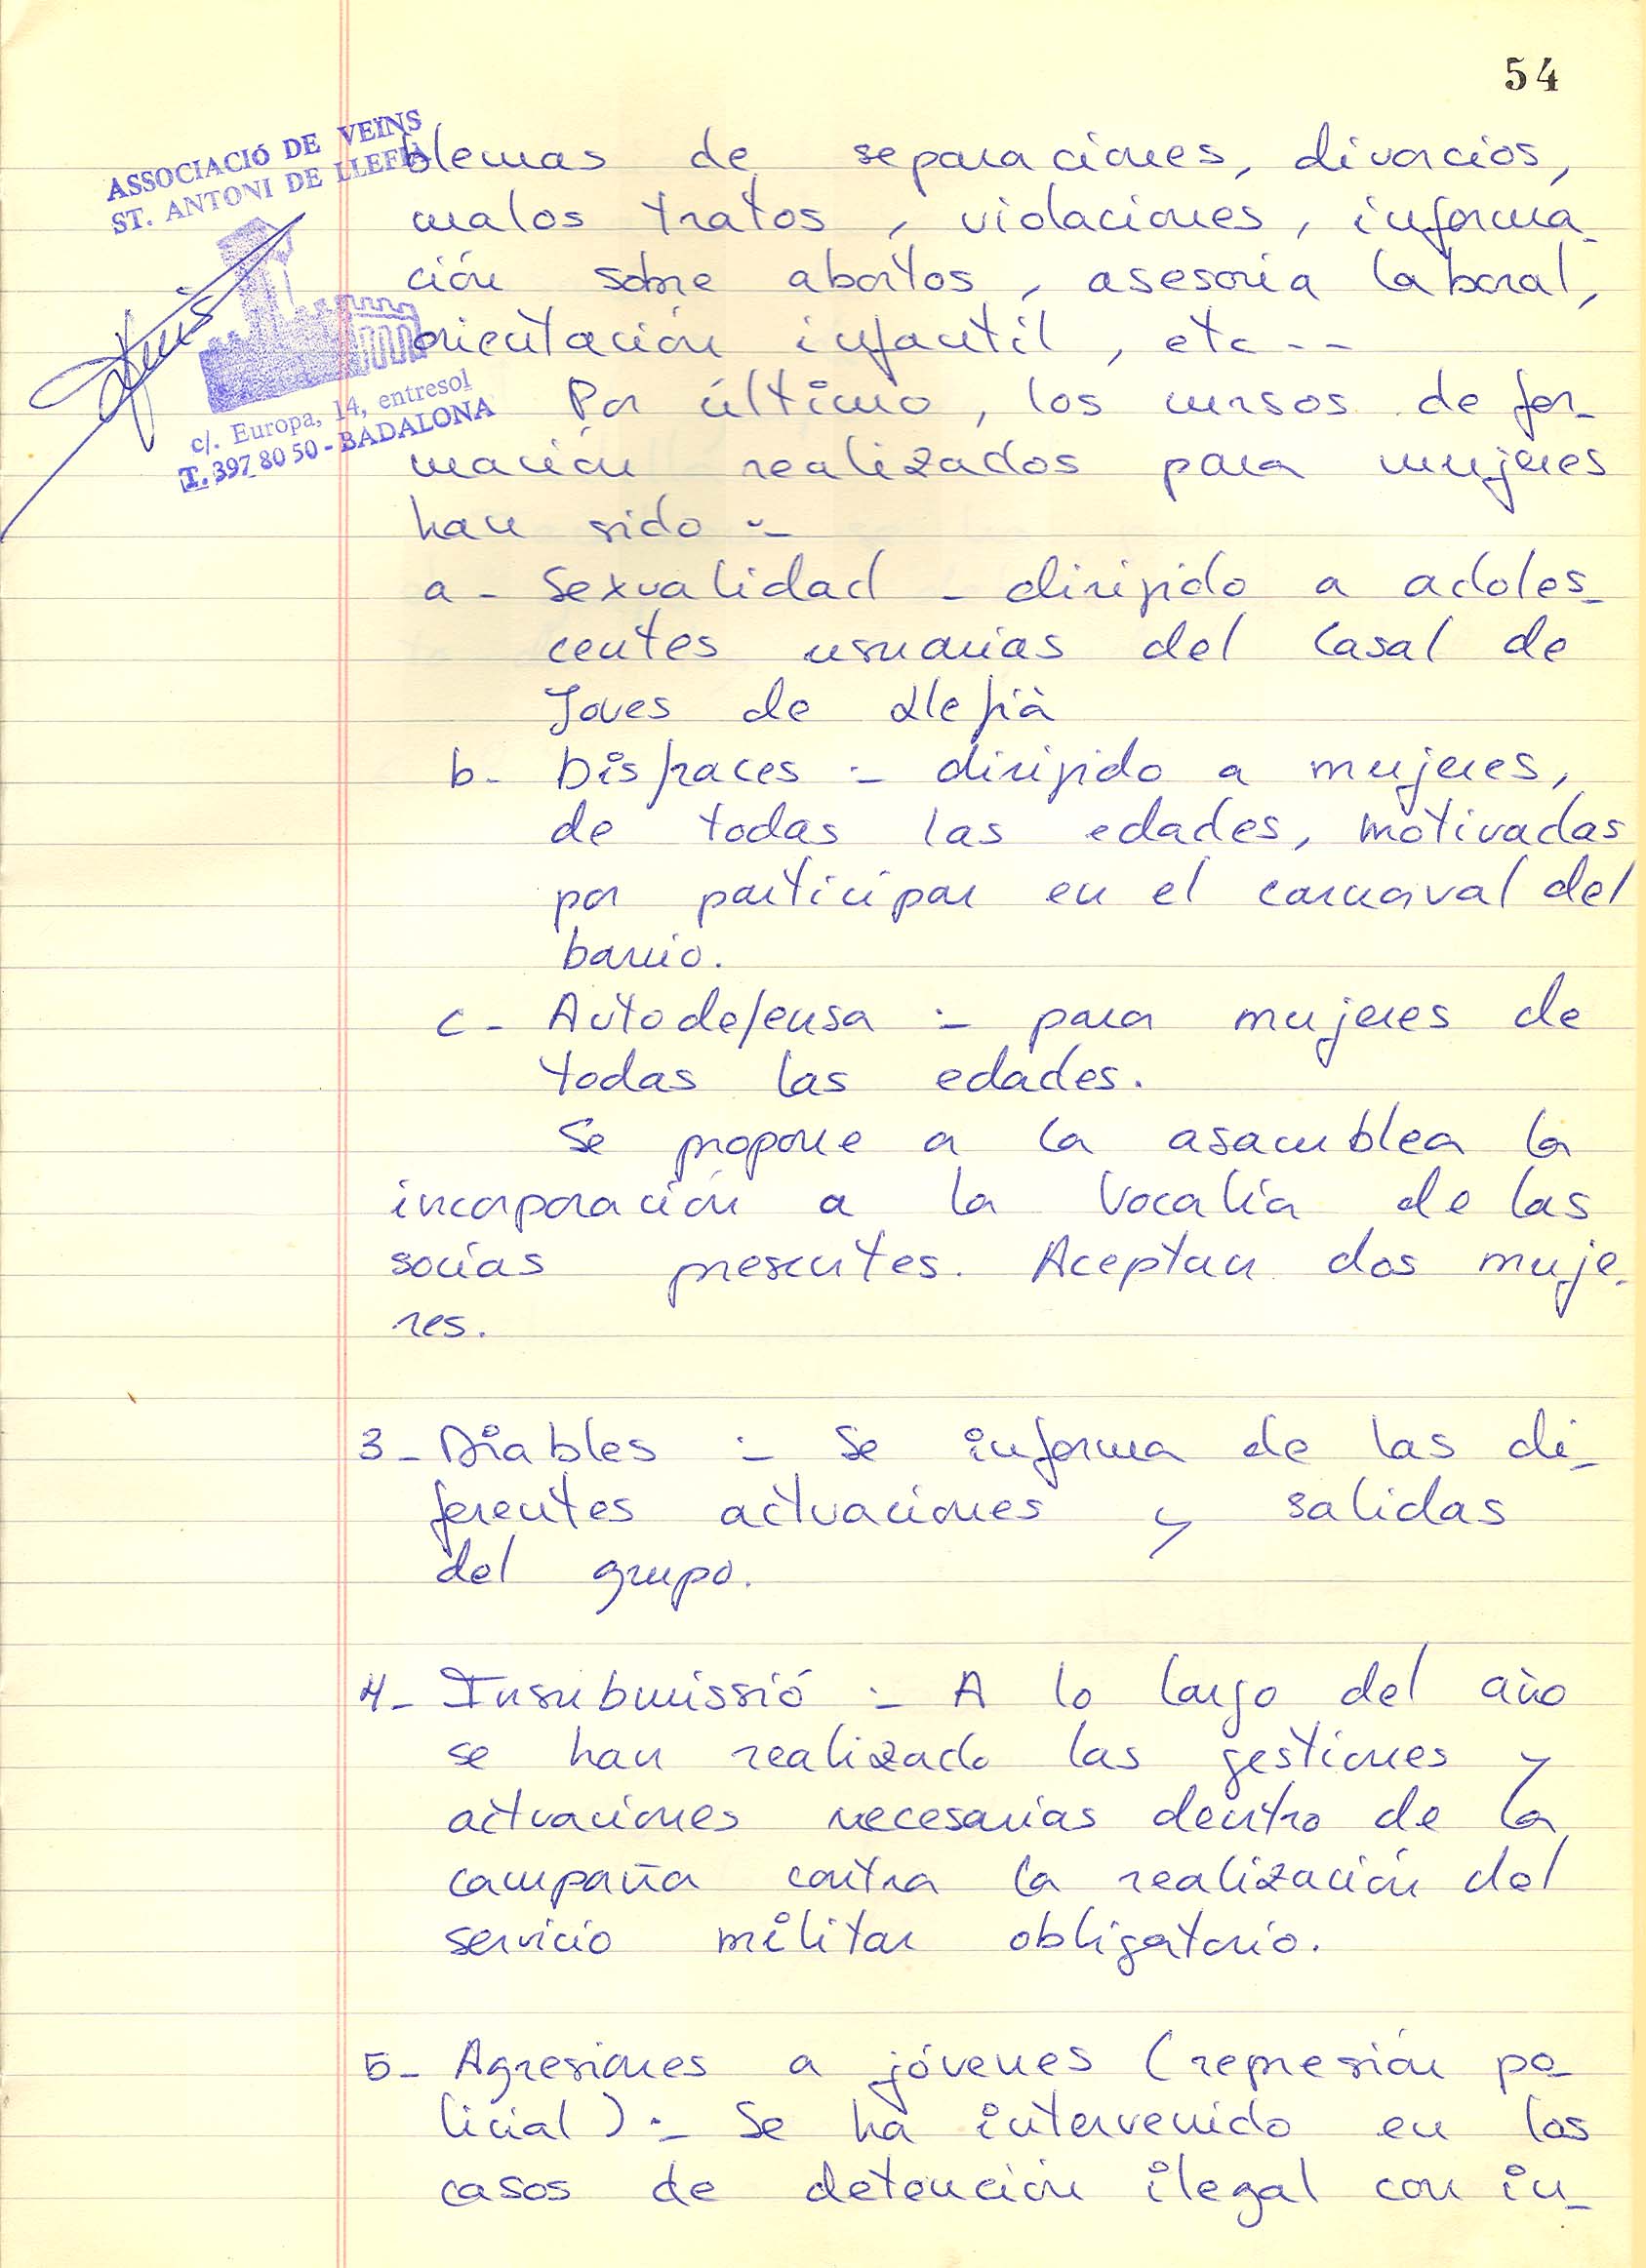 54
ASSOCIACIÓ DE VEÏNS
ST. ANTONI DE LLEFIÀ
c/. Europa, 14, entresol
T. 397 80 50 - BADALONA
blemas de separaciones, divorcios,
malos tratos, violaciones, informa-
ción sobre abortos, asesoria laboral,
orientación infantil, etc--
Por último, los cursos de for-
mación realizados para mujeres
han sido :-
a - Sexualidad - dirigido a adoles-
centes usuarias del Casal de
Joves de Llefià
b- Disfraces :- dirigido a mujeres,
de todas las edades, motivadas
por participar en el carnaval del
barrio.
c - Autodefensa :- para mujeres de
todas las edades.
Se propone a la asamblea la
incorporación a la Vocalía de las
socias presentes. Aceptan dos muje-
res.
3 - Diables :- Se informa de las di-
ferentes actuaciones y salidas
del grupo.
4 - Insubmissió :- A lo largo del año
se han realizado las gestiones y
actuaciones necesarias dentro de la
campaña contra la realización del
servicio militar obligatorio.
5 - Agresiones a jóvenes (represión po-
licial) :- Se ha intervenido en los
casos de detención ilegal con in-